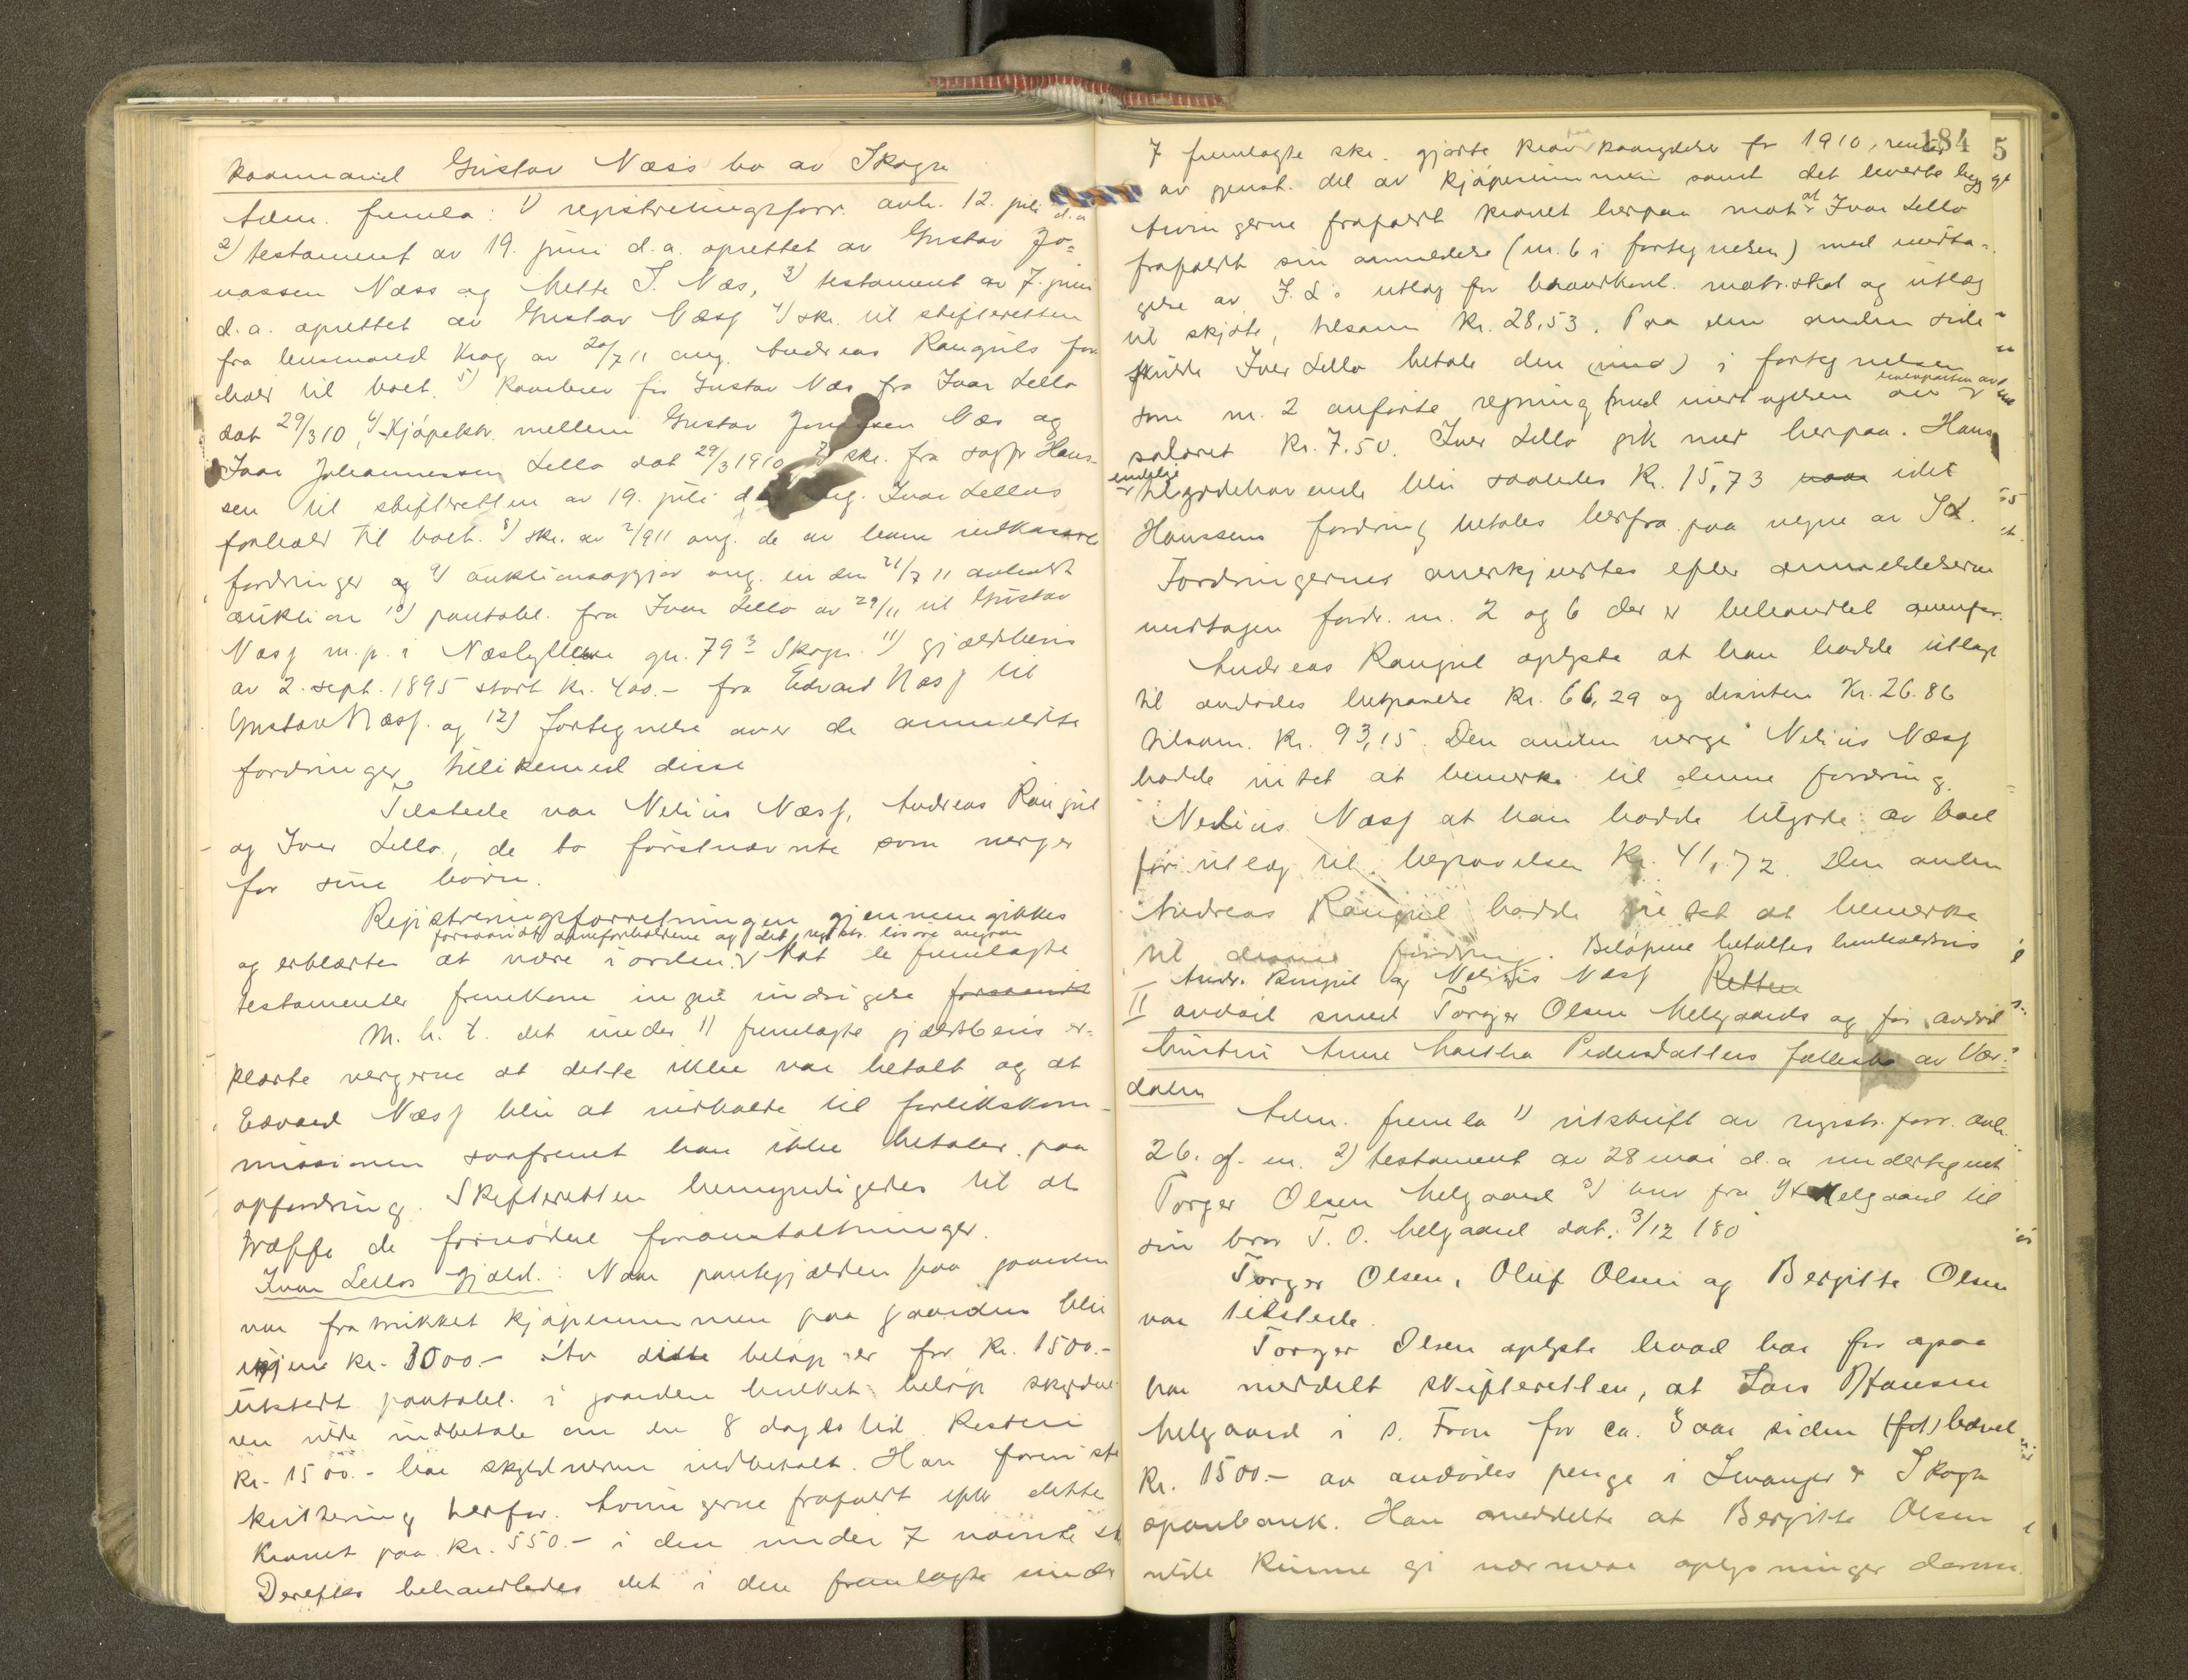 kaarmand Gustav Næss bo av Skogn
Adm. fremla: 1) registreringsforr. avh. 12. juli d.a
2) testament av 19. juni d.a. oprettet av Gustav Jo=
nassen Næss og Mette S. Næs, 3) testament av 7. juni
d.a. oprettet av Gustav Næss 4) skr. til skifteretten
fra lensmand Krog av 20/7 11 ang. Andreas Ranguls for
hold til boet. 5) Kravbrev fra Gustav Næs fra Ivar Lello
dat 29/3 10, 6) Kjøpektr. mellem Gustav Jonassen Næs og
Ivar Johannessen Lello dat 29/3 1910 7) skr. fra sagf. Hans-
sen til skifteretten av 19. juli d.a. ang. Ivar Lellos
forhold til boet. 8) skr. av 2/9 11 ang. de av ham indkasserte
fordringer og 9) auktionsopgjør ang. en den 21/7 11 avholdt
auktion 10) pantobl. fra Ivar Lello av 29/11 til Gustav
Næss m.p. i Næshylla gn. 79 3 Skogn. 11) gjældsbevis
av 2. sept. 1895 stort kr. 400.- fra Edvard Næss til
Gustav Næss. og 12) fortegnelse over de anmeldte
fordringer tillikemed disse
Tilstede var Nelius Næss, Andreas Rangul
og Iver Lello, de to førstnævnte som verger
for sine børn.
Registreringsforretningen gjennemgikkes
forsaavidt arveforholdene og det registr. løsøre angaar
og erklærtes at være i orden. Mot de fremlagte
testamenter fremkom ingen indsigelse forsaavidt
M. h. t. det under 11 fremlagte gjældsbevis er=
klærte vergerne at dette ikke var betalt og at
Edvard Næss blir at indkalde til forlikskom-
missionen saafremt han ikke betaler paa
opfordring. Skifteretten bemyndigedes til at
træffe de fornødne foranstaltninger.
Ivar Lellos gjæld.: Naar pantegjælden paa gaarden
var fratrukket kjøpesummen paa gaarden blir
igjen kr. 3000.- Av dette beløp er for kr. 1500.-
utstedt pantobl. i gaarden hvilket beløp skyldne-
ren vilde indbetale om en 8 dages tid Resten
kr. 1500.- har skyldneren indbetalt. Han foreviste
kvittering herfor. Arvingerne frafaldt efter dette
kravet paa kr. 550.- i den under 7 nævnte sk
Derefter behandledes det i den fremlagte under
184 5
7 fremlagte skr. gjorte krav paa kaarydelser for 1910, renter
av gjenst. del av kjøpesummen samt det leverte bygg
Arvingerne frafaldt kravet herpaa mot at Ivar Lello
frafaldt sin anmeldelse (nr. 6 i fortegnelsen) med undta-
gelse av I. L's utlæg for matr.skat og utlæg
til skjøte, tilsam. kr. 28,53. Paa den anden side
skulde Iver Lello betale den (mod) i fortegnelsen
som nr. 2 anførte regning med undtagelsen av
salæret kr. 7.50. Iver Lello gik med herpaa. Hans
endelige tilgodehavende blir saaledes kr. 15,73 idet
Hanssens fordring betales herfra paa vegne av I.L.
Fordringerne anerkjendtes efter anmeldelserne
undtagen fordr. nr. 2 og 6 der er behandlet ovenfor.
Andreas Rangul oplyste at han hadde utlagt
til avdødes begravelse kr. 66,29 og desuten kr. 26.86
tilsam. kr. 93,15. Den anden verge Nelius Næss
hadde intet at bemerke til denne fordring.
Nelius Næss at han hadde tilgode av boet
for utlæg til begravelsen kr. 41,72. Den anden
Andreas Rangul hadde intet at bemerke
til denne fordring. Beløpene betaltes henholdsvis
Andr. Rangul og Nelius Næss Retten
II avdød smed Torger Olsen Melgaards og før avdød
hustru Anne Martha Pedersdatters fællesbo av Vær=
dalen
Adm. fremla 1) utskrift av registr. forr. avh.
26. f. m. 2) testament av 28 mai d.a undertegnet
Torger Olsen Melgaard 3) brev fra Melgaard til
sin bror T. O. Melgaard dat. 3/12 180
Torger Olsen, Oluf Olsen og Bergitte Olsen
var tilstede.
Torger Olsen oplyste hvad han før ogsaa
har meddelt skifteretten, at Lars P. Hansen
Melgaard i s. Fron for ca. 3 aar siden (fik) hævet
kr. 1500.- av avdødes penge i Levanger & Skogn
sparebank. Han meddelte at Bergitte Olsen
vilde kunne gi nærmere oplysninger derom.